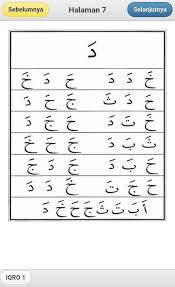 Sebelumnya Halaman 7 Selanjutnya
دَ
خَ دَ دَ حَ دَ خَ
حَ دَ ثَ جَ حَ دَ
خَ تَ دَ حَ جَ دَ
ثَ بَ دَ جَ حَ خَ
حَ بَ دَ جَ دَ حَ
حَ جَ تَ خَ دَ دَ
اَ بَ تَ ثَ جَ حَ خَ دَ
IQRO 1